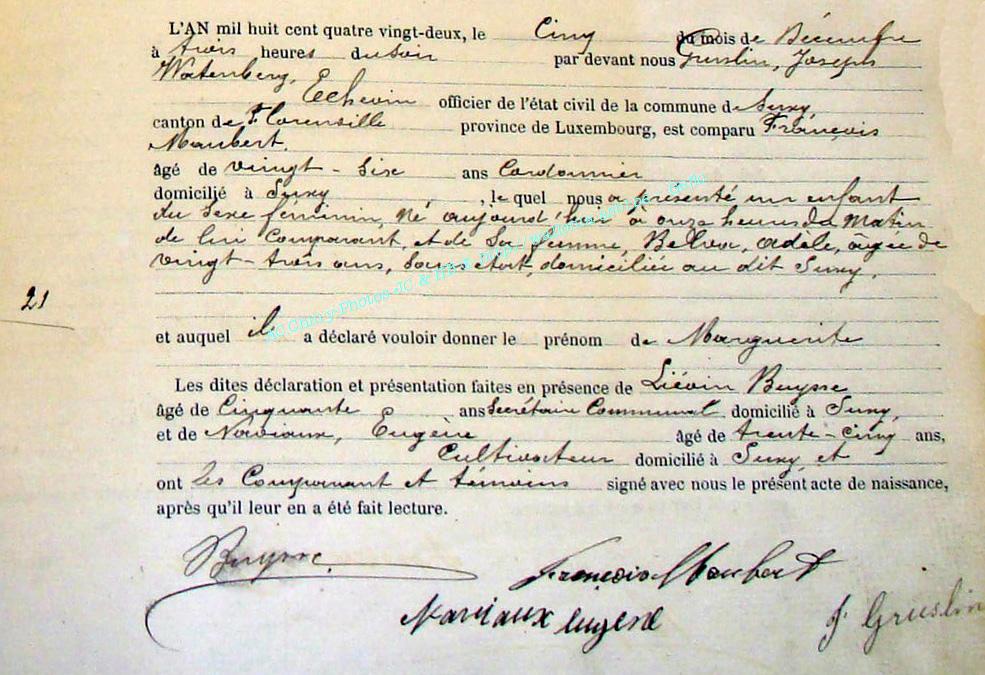 L'AN mil huit cent quatre vingt-deux, le Cinq du mois de Décembre
à trois heures du Soir par devant nous Gruslin, Joseph
Watenberg,
Echevin officier de l'état civil de la commune de Suxy,
canton de Florenville province de Luxembourg, est comparu François
Maubert.
âgé de vingt-six ans Cordonnier
domicilié à Suxy, le quel nous a présenté un enfant
du Sexe feminin, né aujourd'hui à onze heures du Matin
de lui Comparant, et de Sa femme, Belva, Adèle, âgée de
vingt-trois ans, Sans état, domiciliée au dit Suxy.
21
et auquel il a déclaré vouloir donner le prénom de Marguerite
Les dites déclaration et présentation faites en présence de Liévin Buysse
âgé de Cinquante ans Secrétaire Communal domicilié à Suxy,
et de Naviaux, Eugène âgé de trente-cinq ans,
Cultivateur domicilié à Suxy, et
ont les Comparant et témoins signé avec nous le présent acte de naissance,
après qu'il leur en a été fait lecture.
Buysse
François Maubert
Naviaux Eugene
J Gruslin